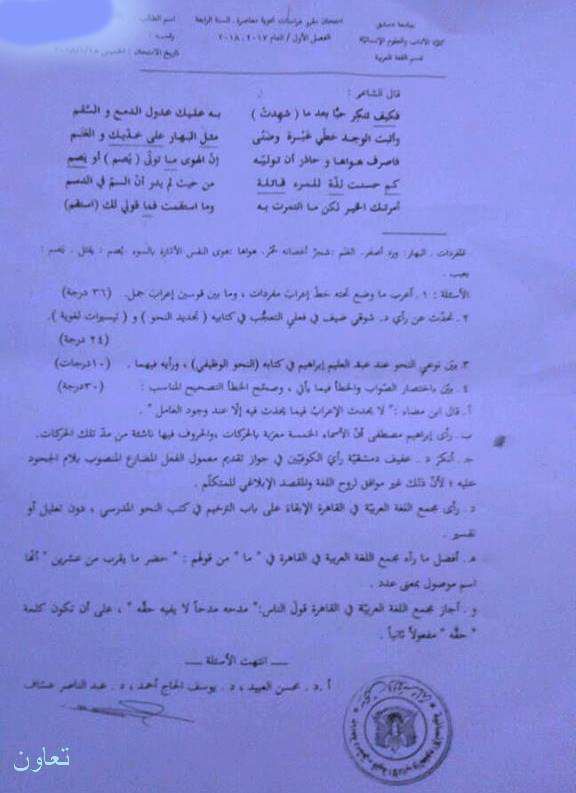 جامعة دمشق
كلية الآداب والعلوم الإنسانية
قسم اللغة العربية
امتحان مقرر دراسات نحوية معاصرة . السنة الرابعة
الفصل الأول / العام ٢٠١٧ . ٢٠١٨
اسم الطالب :
تاريخ الامتحان : الخميس
قال الشاعر :
فكيف تنكر حبًّا بعد ما ( شهدتْ ) به عليك عدول الدمع و السَّقَم
وأثبت الوجد خطَّي عَبْرة وضَنًى مثل البهار على خدّيك و العَنَم
فاصرف هواها و حاذر أن توليه إنّ الهوى ما تولّى ( يُصم ) أو يَصِم
كم حسنت لذّة للمرء قاتلة من حيث لم يدر أنّ السمّ في الدسم
أمرتك الخير لكن ما ائتمرت به وما استقمت فما قولي لك ( استقم )
المفردات . البهار: ورد أصفر. العَنَم : شجرٌ أغصانه حُمْر. هواها :هوى النفس الأمّارة بالسوء. يُصم : يقتل . يَصِم :
يعيب .
الأسئلة : ١ . أعرب ما وضع تحته خطّ إعرابَ مفردات ، وما بين قوسين إعرابَ جمل. (٣٦ درجة)
٢ . تحدّث عن رأي د. شوقي ضيف في فعلي التعجُّب في كتابيه ( تجديد النحو ) و ( تيسيرات لغوية ).
(٢٤ درجة)
٣ . بيّن نوعي النحو عند عبد العليم إبراهيم في كتابه (النحو الوظيفي) ، ورأيه فيهما . (١٠درجات)
٤ . بيّن باختصار الصّواب والخطأ فيما يأتي ، وصحّح الخطأ التصحيح المناسب : (٣٠درجة)
أ . قال ابن مضاء : " لا يحدث الإعرابُ فيما يحدث فيه إلّا عند وجود العامل " .
ب. رأى إبراهيم مصطفى أنّ الأسماء الخمسة معربة بالحركات ،والحروف فيها ناشئة من مدّ تلك الحركات.
جـ. أنكرَ د . عفيف دمشقيّة رأيَ الكوفيّين في جواز تقديم معمول الفعل المضارع المنصوب بلام الجحود
عليه ؛ لأنّ ذلك غير موافق لروح اللغة والمقصد الإبلاغي للمتكلّم .
د . رأى مجمع اللغة العربيّة في القاهرة الإبقاءَ على باب الترخيم في كتب النحو المدرسي ، دون تعليل أو
تفسير .
هـ . أفضل ما رآه مجمع اللغة العربية في القاهرة في " ما " من قولهم : " حضر ما يقرب من عشرين " أنّها
اسم موصول بمعنى عدد .
و . أجاز مجمع اللغة العربيّة في القاهرة قولَ الناس:" مدحه مدحاً لا يفيه حقّه " ، على أن تكون كلمة
" حقّه " مفعولاً ثانياً .
ــــ انتهت الأسئلة ــــ
أ .د . محسن العبيد ، د . يوسف الحاج أحمد ، د . عبد الناصر عساف
تعاون